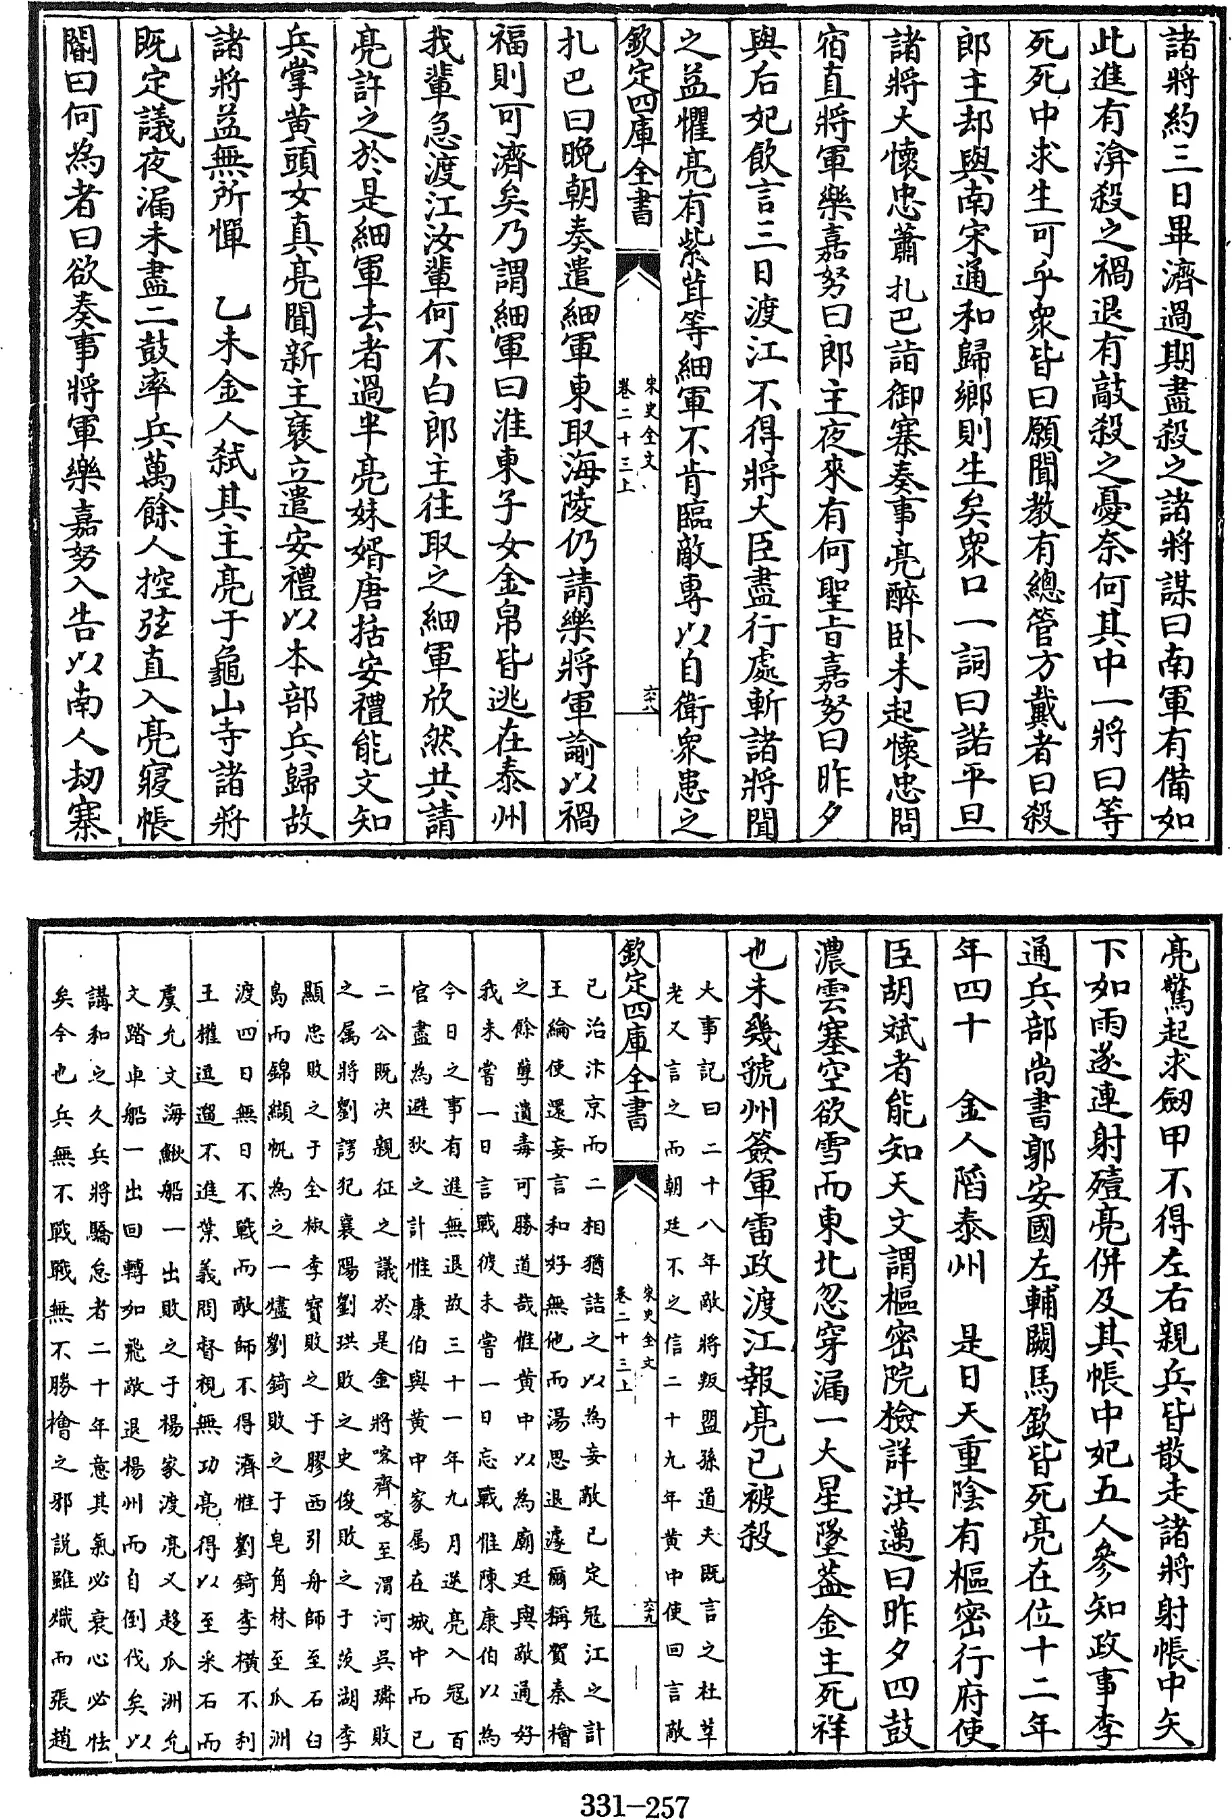 諸將約三日畢濟過期盡殺之諸將謀曰南軍有備如
此進有渰殺之禍退有敲殺之憂奈何其中一將曰等
死死中求生可乎衆皆曰願聞教有總管方戴者曰殺
郎主却與南宋通和歸鄉則生矣衆口一詞曰諾平旦
諸將大懷忠蕭扎巴詣御寨奏事亮醉卧未起懷忠問
宿直將軍樂嘉努曰郎主夜來有何聖旨嘉努曰昨夕
與后妃飲言三日渡江不得將大臣盡行處斬諸將聞
之益懼亮有紫茸等細軍不肯臨敵專以自衛衆患之
欽定四庫全書
宋史全文
卷二十三上
六十八
扎巴曰晚朝奏遣細軍東取海陵仍請樂將軍諭以禍
福則可濟矣乃謂細軍曰淮東子女金帛皆逃在泰州
我輩急渡江汝輩何不白郎主往取之細軍欣然共請
亮許之於是細軍去者過半亮妹婿唐括安禮能文知
兵掌黄頭女真亮聞新主襃立遣安禮以本部兵歸故
諸將益無所憚　乙未金人弑其主亮于龜山寺諸將
既定議夜漏未盡二鼓率兵萬餘人控弦直入亮寢帳
閽曰何為者曰欲奏事將軍樂嘉努入告以南人刼寨
亮驚起求劒甲不得左右親兵皆散走諸將射帳中矢
下如雨遂連射殪亮併及其帳中妃五人參知政事李
通兵部尚書郭安國左輔闕馬欽皆死亮在位十二年
年四十　金人陷泰州　是日天重陰有樞密行府使
臣胡斌者能知天文謂樞密院檢詳洪邁曰昨夕四鼓
濃雲塞空欲雪而東北忽穿漏一大星墜葢金主死祥
也未幾虢州簽軍雷政渡江報亮已被殺
大事記曰二十八年敵將叛盟孫道夫既言之杜莘
老又言之而朝廷不之信二十九年黄中使回言敵
欽定四庫全書
宋史全文
卷二十三上
六十九
已治汴京而二相猶詰之以為妄敵已定冦江之計
王綸使還妄言和好無他而湯思退遽爾稱賀秦檜
之餘孽遺毒可勝道哉惟黄中以為廟廷與敵通好
我未嘗一日言戰彼未嘗一日忘戰惟陳康伯以為
今日之事有進無退故三十一年九月逆亮入冦百
官盡為避狄之計惟康伯與黄中家属在城中而已
二公既决親征之議於是金將喀齊喀至渭河吳璘敗
之属將劉諤犯襄陽劉珙敗之史俊敗之于茨湖李
顯忠敗之于全椒李寳敗之于膠西引舟師至石臼
島而錦纈帆為之一燼劉錡敗之于皂角林至瓜洲
渡四日無日不戰而敵師不得濟惟劉錡李横不利
王權逗遛不進葉義問督視無功亮得以至采石而
虞允文海鰍船一出敗之于楊家渡亮又趍瓜洲允
文踏車船一出回轉如飛敵退揚州而自倒伐矣以
講和之久兵將驕怠者二十年意其氣必衰心必怯
矣今也兵無不戰戰無不勝檜之邪說雖熾而張趙
331—257